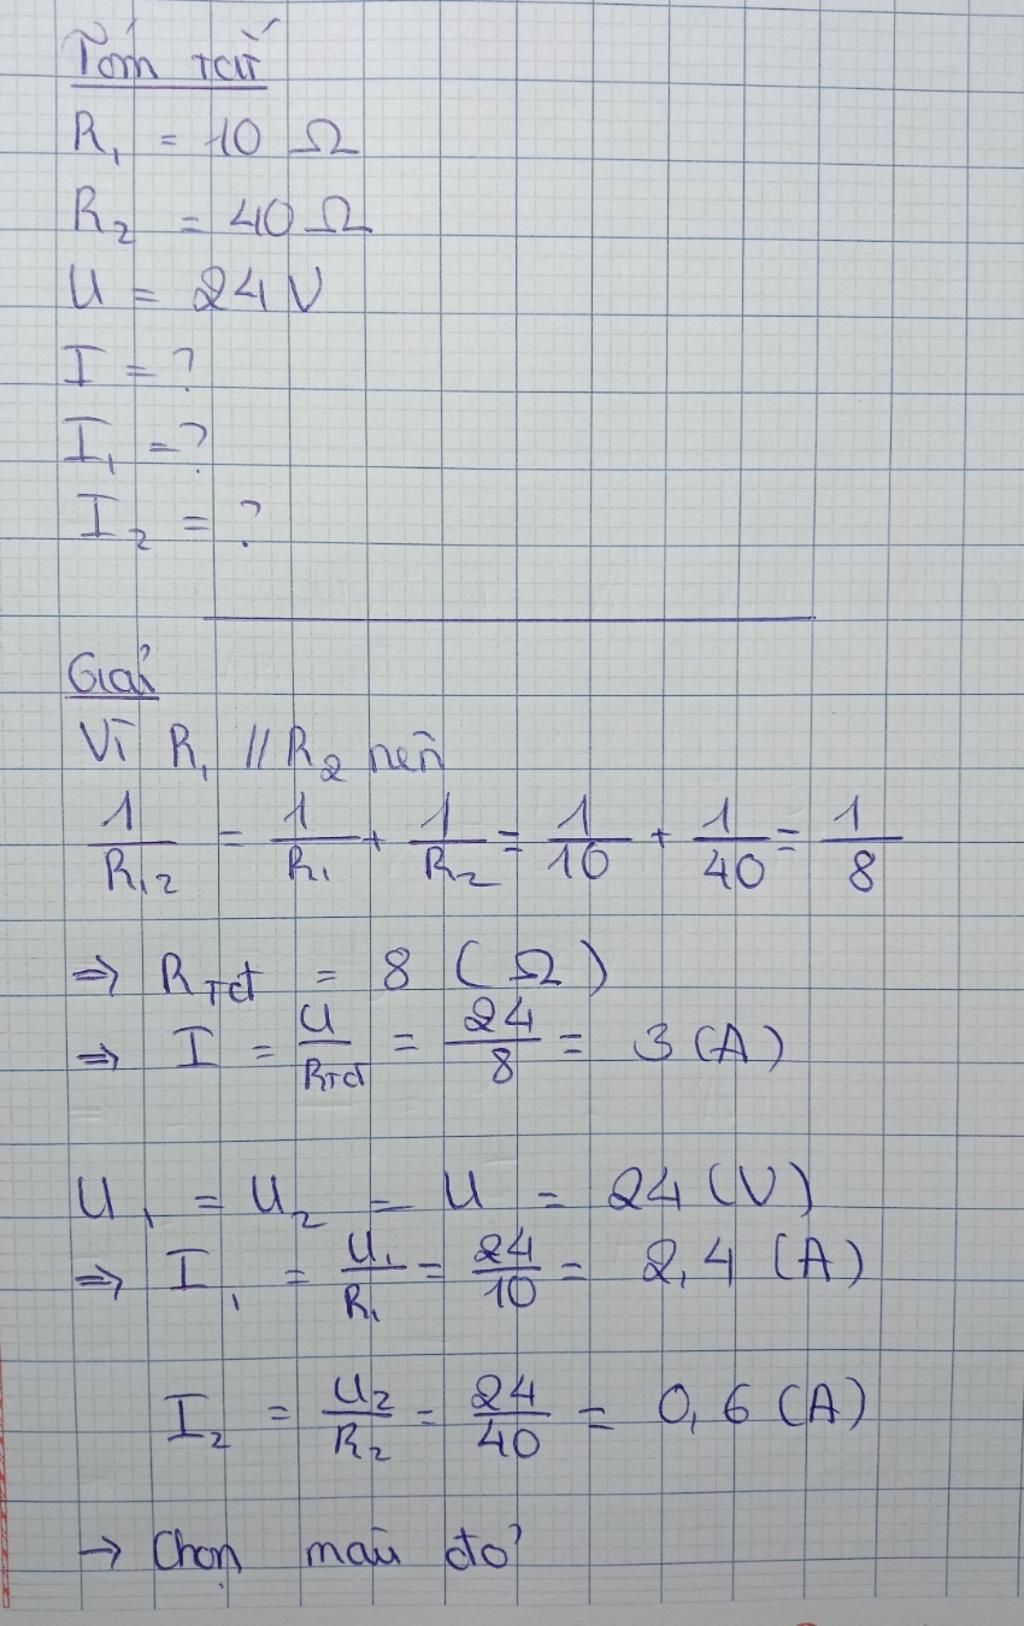 Tóm tắt
R₁ = 10 Ω
R₂ = 40 Ω
U = 24 V
I = ?
I₁ = ?
I₂ = ?
Giải
Vì R₁ // R₂ nên
1/R₁₂ = 1/R₁ + 1/R₂ = 1/10 + 1/40 = 1/8
⇒ Rtđ = 8 (Ω)
⇒ I = U/Rtđ = 24/8 = 3 (A)
U₁ = U₂ = U = 24 (V)
⇒ I₁ = U₁/R₁ = 24/10 = 2,4 (A)
I₂ = U₂/R₂ = 24/40 = 0,6 (A)
→ Chọn màu đỏ